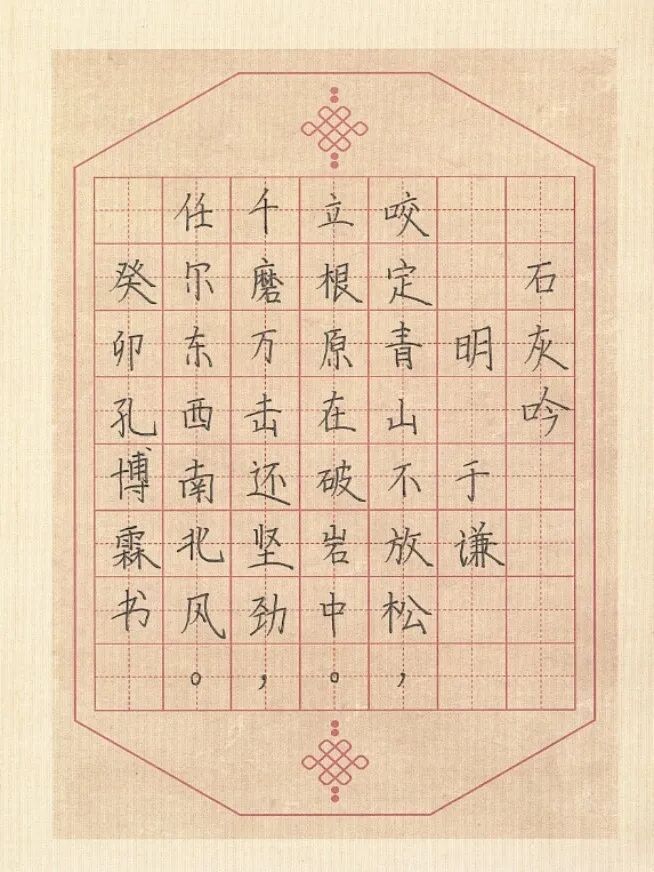 石灰吟
明 于谦
咬定青山不放松，
立根原在破岩中。
千磨万击还坚劲，
任尔东西南北风。
癸卯孔博霖书